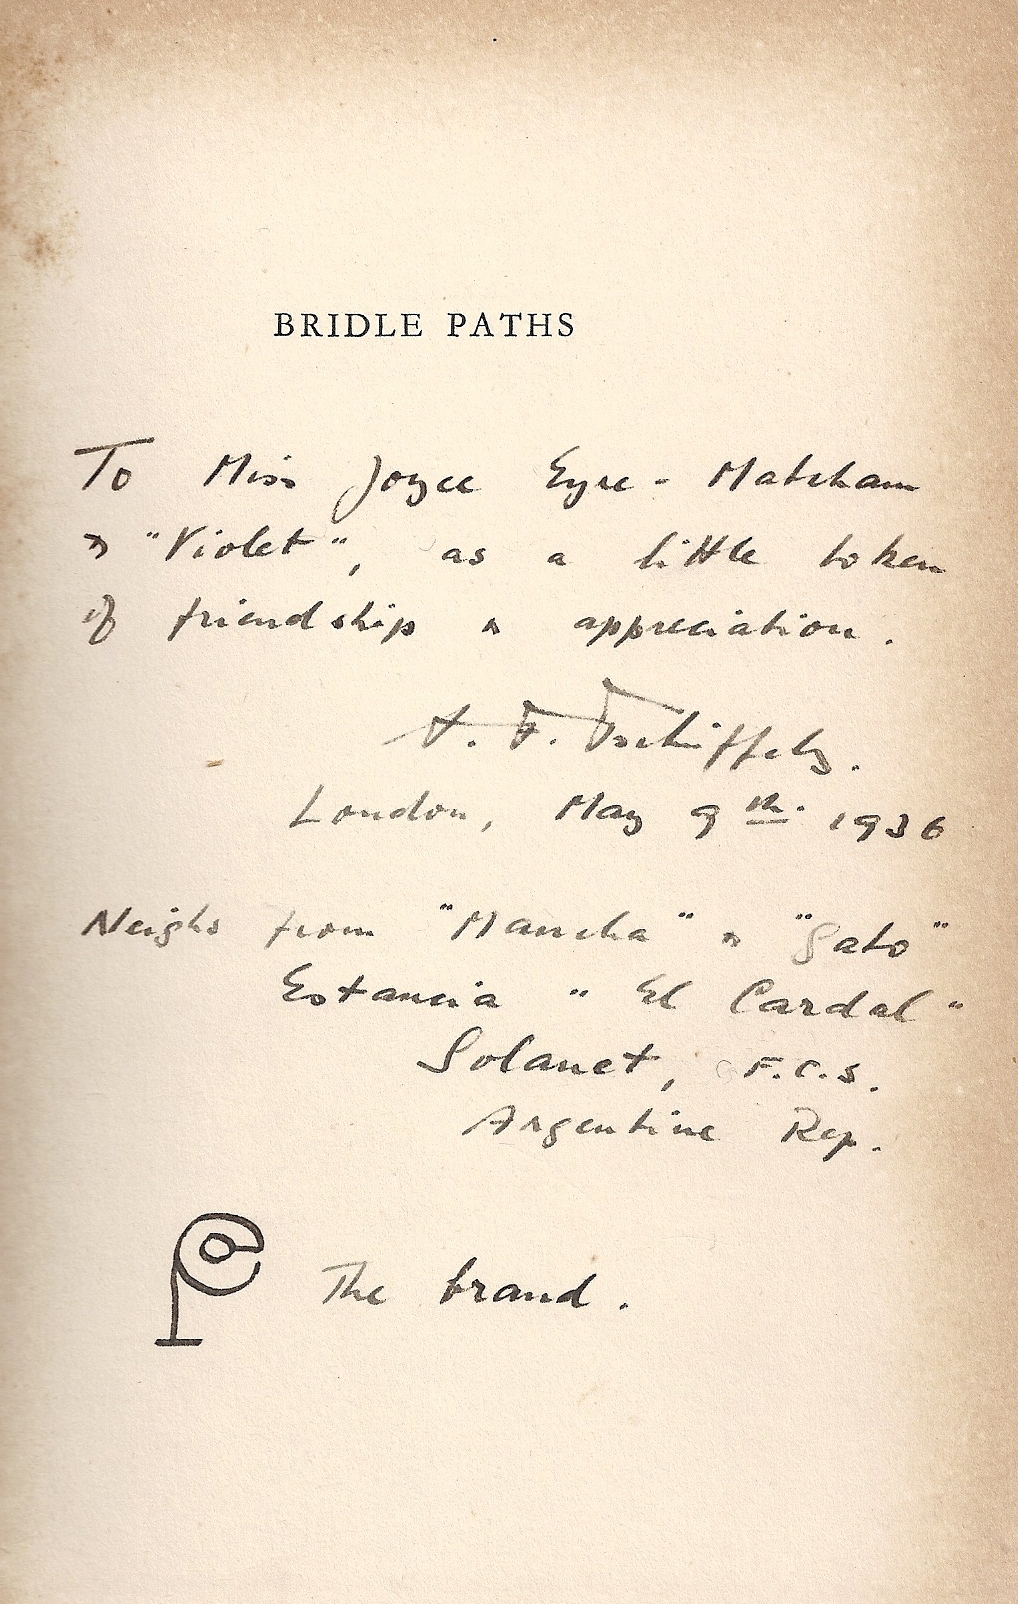 BRIDLE PATHS
To Miss Joyce Eyre-Matcham
& "Violet", as a little token
of friendship & appreciation.
A. F. Tschiffely.
London, May 9th. 1936
Neighs from "Mancha" & "Gato"
Estancia "El Cardal"
Solanet, F.C.S.
Argentine Rep.
The brand.